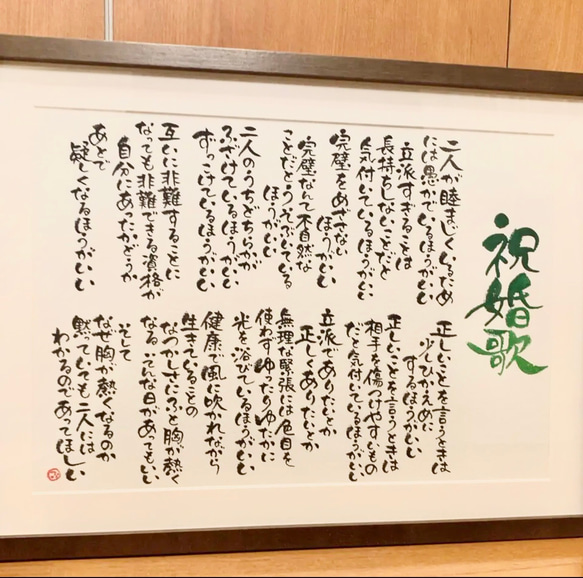 祝婚歌
二人が睦まじくいるため
には愚かでいるほうがいい
立派すぎることは
長持ちしないことだと
気付いているほうがいい
完璧をめざさない
ほうがいい
完璧なんて不自然な
ことだとうそぶいている
ほうがいい
二人のうちどちらかが
ふざけているほうがいい
ずっこけているほうがいい
互いに非難することに
なっても非難できる資格が
自分にあったかどうか
あとで
疑しくなるほうがいい
正しいことを言うときは
少しひかえめに
するほうがいい
正しいことを言うときは
相手を傷つけやすいもの
だと気付いているほうがいい
立派でありたいとか
正しくありたいとか
無理な緊張には色目を
使わずゆったりゆたかに
光を浴びているほうがいい
健康で風に吹かれながら
生きていることの
なつかしさにふと胸が熱く
なるそんな日があってもいい
そして
なぜ胸が熱くなるのか
黙っていても二人には
わかるのであってほしい